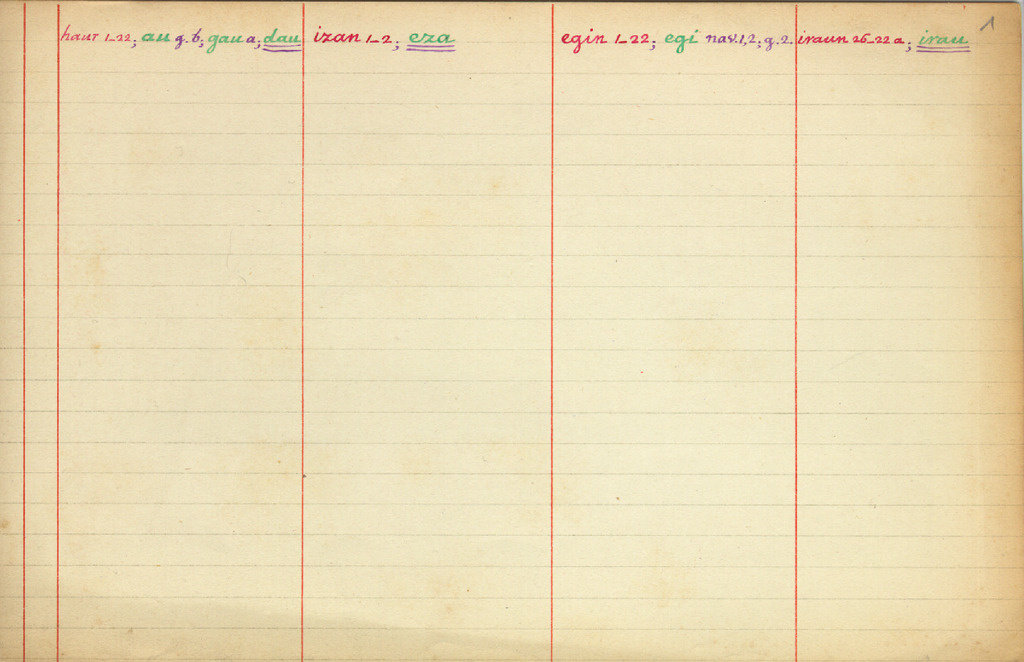 1
haur 1-22; au g. b; gau a; dau izan 1-2; eza egin 1-22; egi nav. 1, 2; g. 2. iraun 26-22 a; irau